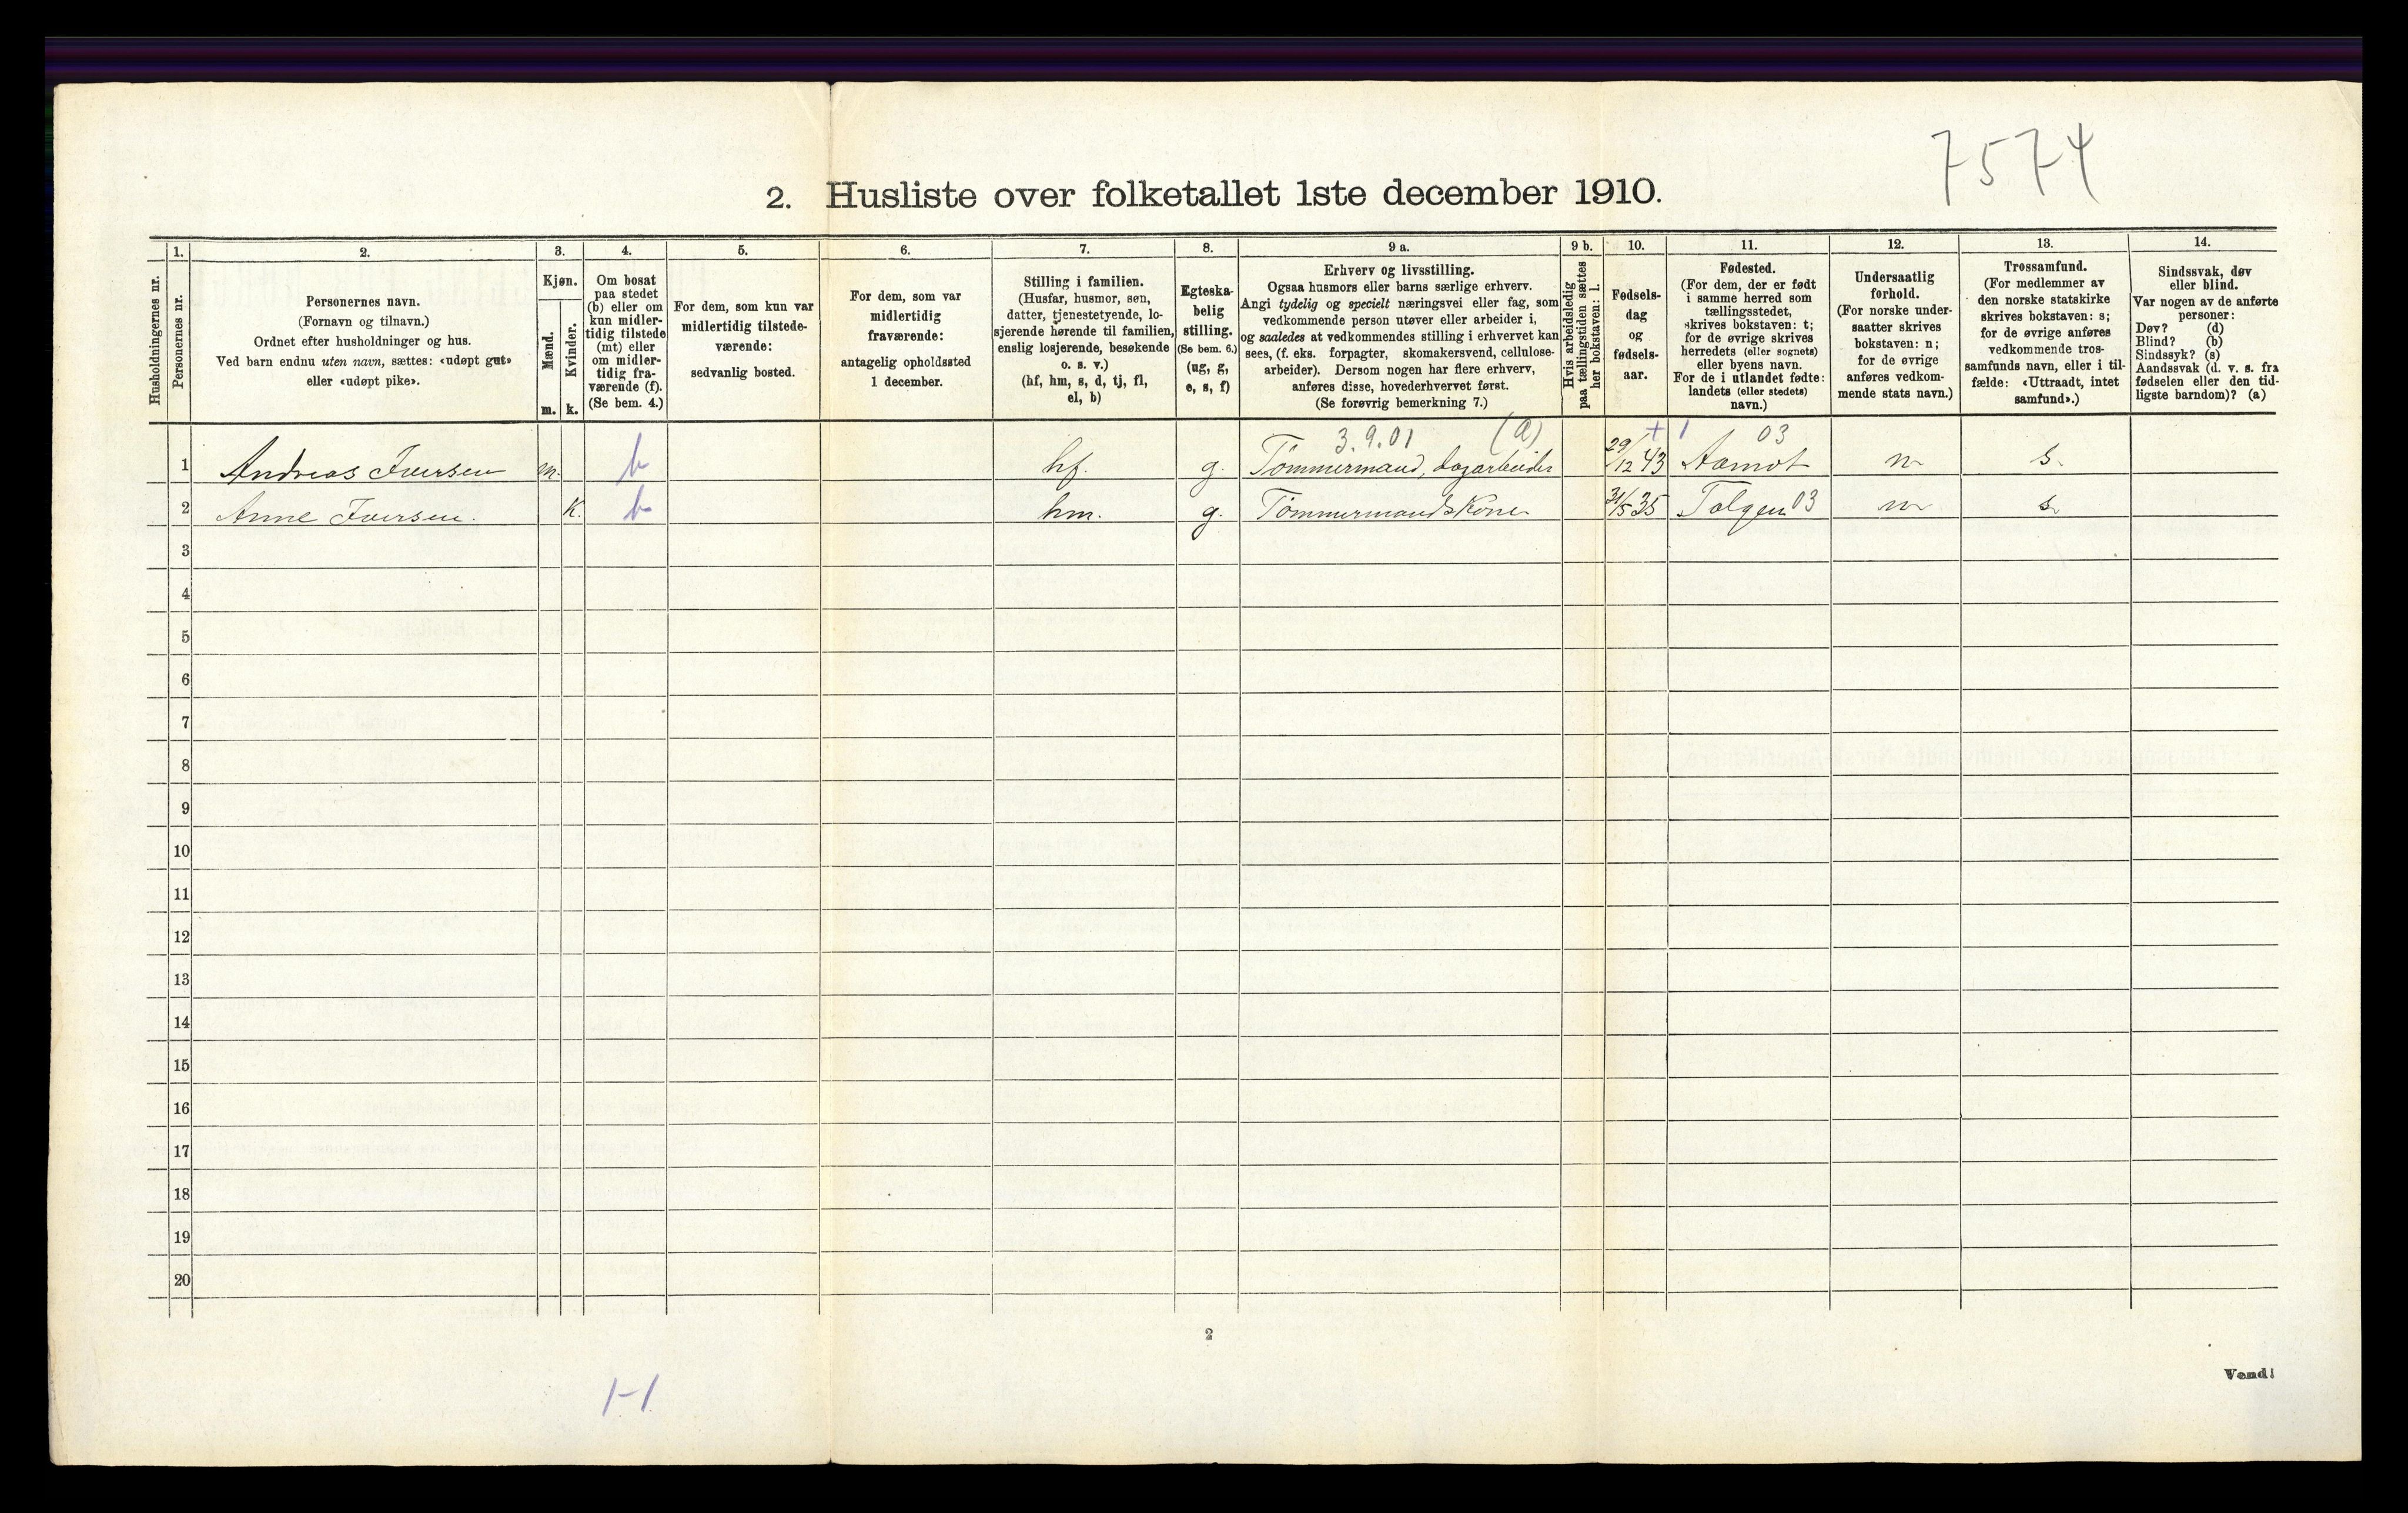 7574
2. Husliste over folketallet 1ste december 1910.
Husholdningernes nr.
1.
Personernes nr.
2.
Personernes navn.
(Fornavn og tilnavn.)
Ordnet efter husholdninger og hus.
Ved barn endnu uten navn, sættes: «udøpt gut»
eller «udøpt pike».
3.
Kjøn.
Mænd.
m.
Kvinder.
k.
4.
Om bosat
paa stedet
(b) eller om
kun midler-
tidig tilstede
(mt) eller
om midler-
tidig fra-
værende (f).
(Se bem. 4.)
5.
For dem, som kun var
midlertidig tilstede-
værende:
sedvanlig bosted.
6.
For dem, som var
midlertidig
fraværende:
antagelig opholdssted
1 december.
7.
Stilling i familien.
(Husfar, husmor, søn,
datter, tjenestetyende, lo-
sjerende hørende til familien,
enslig losjerende, besøkende
o. s. v.)
(hf, hm, s, d, tj, fl,
el, b)
8.
Egteska-
belig
stilling.
(Se bem. 6.)
(ug, g,
e, s, f)
9 a.
Erhverv og livsstilling.
Ogsaa husmors eller barns særlige erhverv.
Angi tydelig og specielt næringsvei eller fag, som
vedkommende person utøver eller arbeider i,
og saaledes at vedkommendes stilling i erhvervet kan
sees, (f. eks. forpagter, skomakersvend, cellulose-
arbeider). Dersom nogen har flere erhverv,
anføres disse, hovederhvervet først.
(Se forøvrig bemerkning 7.)
9 b.
Hvis arbeidsledig
paa tællingstiden sættes
her bokstaven: l.
10.
Fødsels-
dag
og
fødsels-
aar.
11.
Fødested.
(For dem, der er født
i samme herred som
tællingsstedet,
skrives bokstaven: t;
for de øvrige skrives
herredets (eller sognets)
eller byens navn.
For de i utlandet fødte:
landets (eller stedets)
navn.)
12.
Undersaatlig
forhold.
(For norske under-
saatter skrives
bokstaven: n;
for de øvrige
anføres vedkom-
mende stats navn.)
13.
Trossamfund.
(For medlemmer av
den norske statskirke
skrives bokstaven: s;
for de øvrige anføres
vedkommende tros-
samfunds navn, eller i til-
fælde: «Uttraadt, intet
samfund».)
14.
Sindssvak, døv
eller blind.
Var nogen av de anførte
personer:
Døv? (d)
Blind? (b)
Sindssyk? (s)
Aandssvak (d. v. s. fra
fødselen eller den tid-
ligste barndom)? (a)
3.9.01 (a) + 1 03
1 Andreas Iversen m. b hf. g. Tømmermand, dagarbeider 29/12 43 Aamot n s.
2 Anne Iversen. K. b hm. g. Tømmermandskone 31/5 35 Tolgen 03 n s.
3
4
5
6
7
8
9
10
11
12
13
14
15
16
17
18
19
20
2
Vend!
1-1